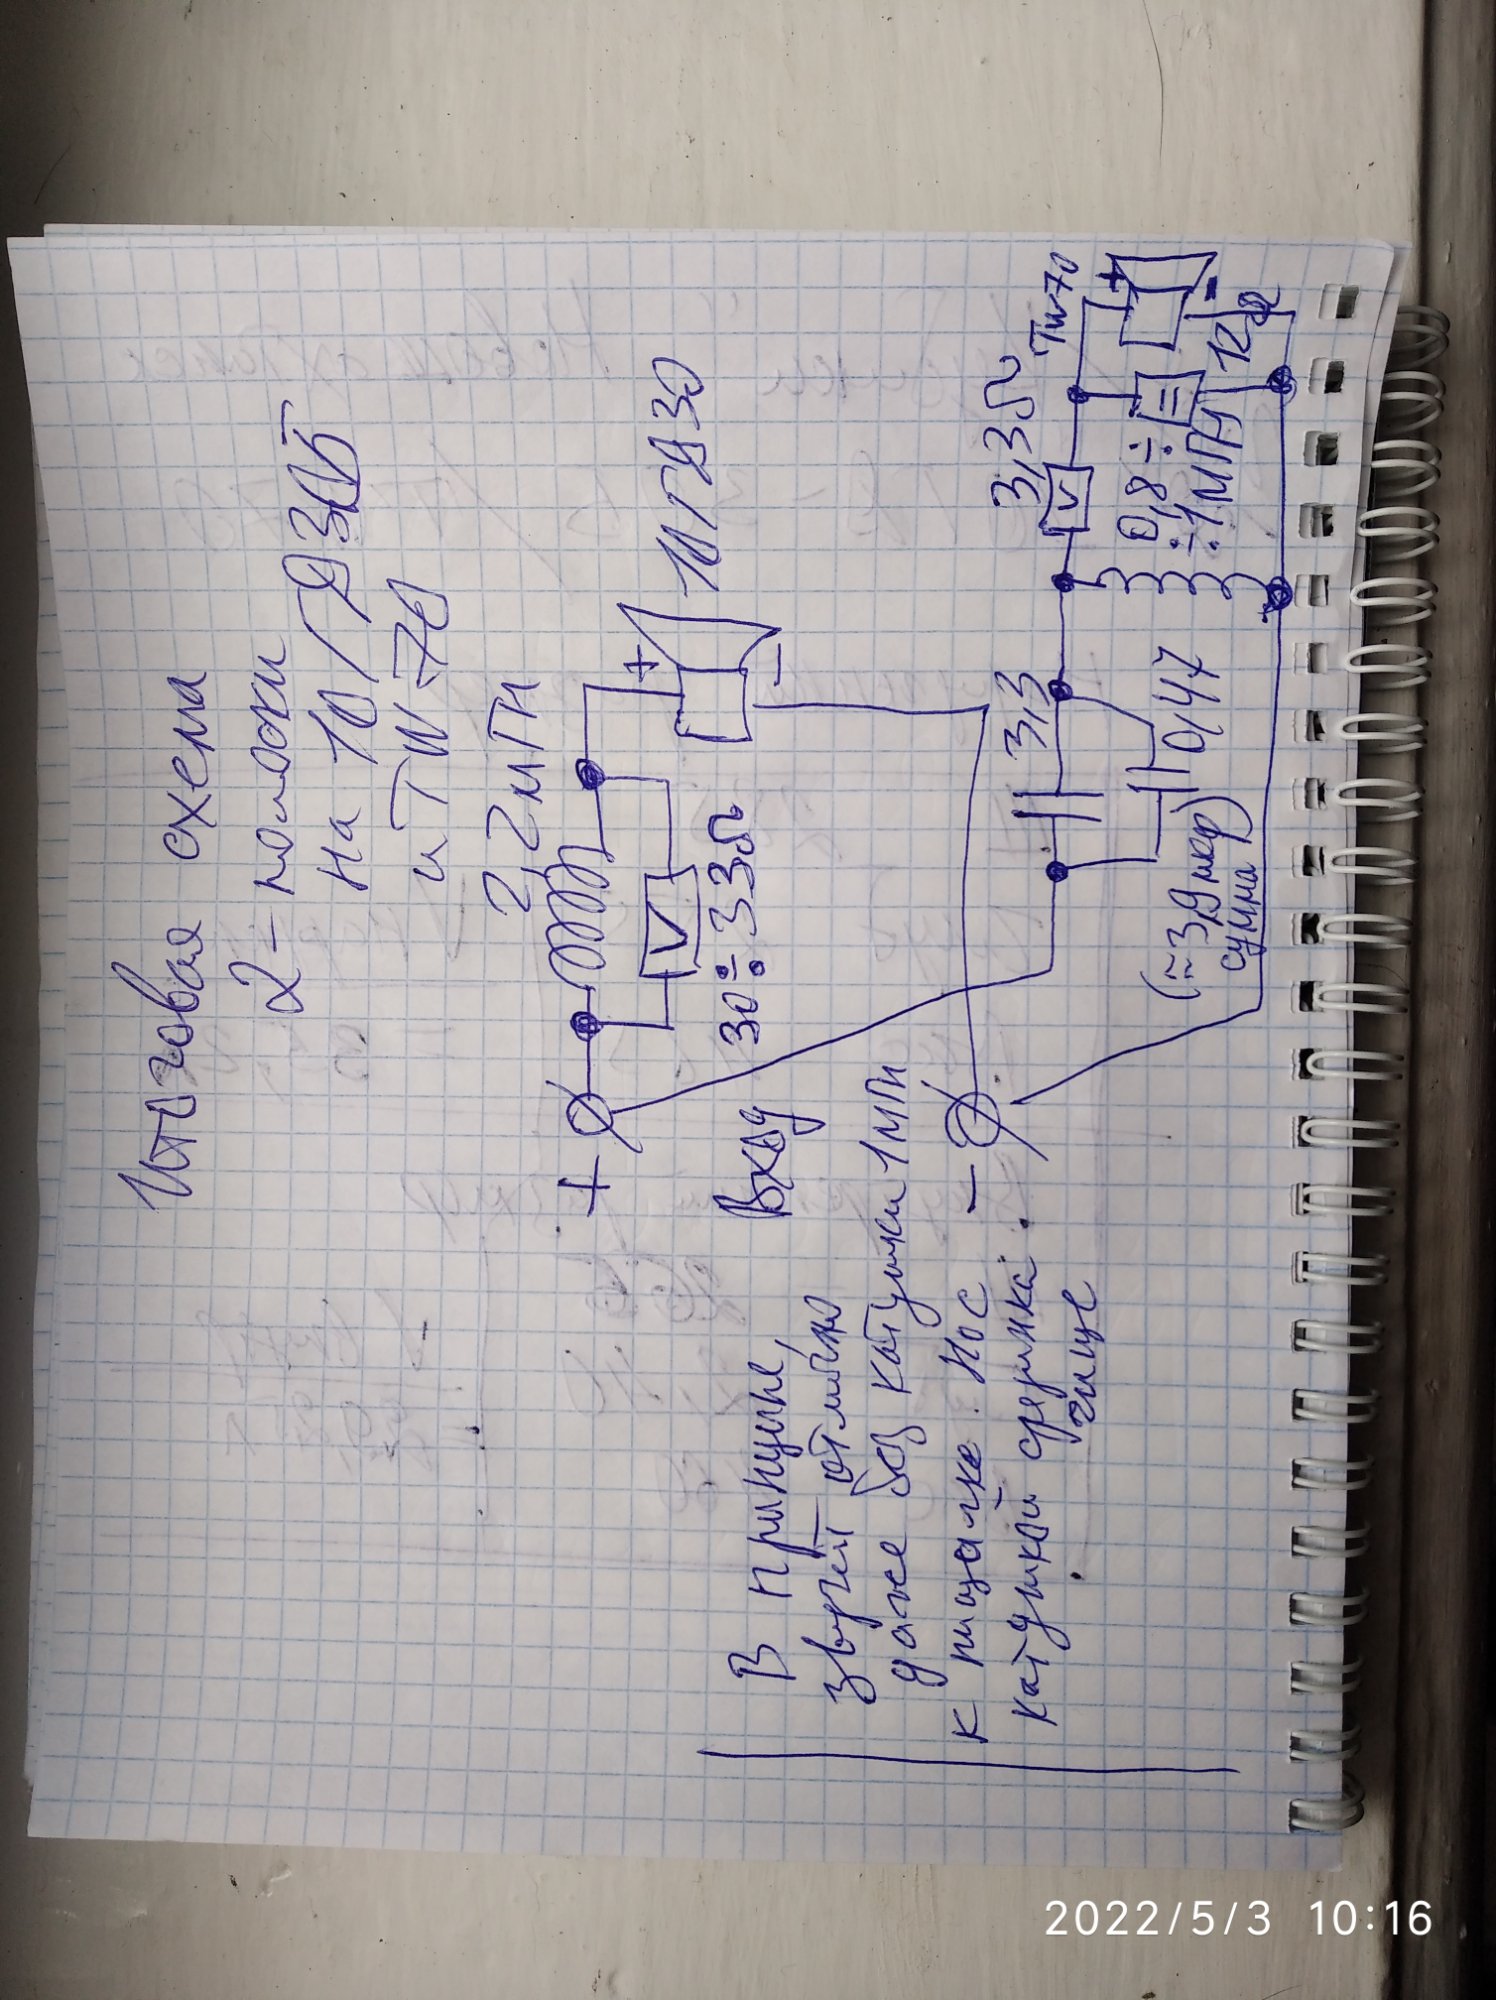 Итоговая схема
2-полоски
на 10ГД30Б
и TW-70
2,2мГн
+
+
-
10ГД30
V
30÷33Ω
Вход
-
3,3
0,47
(≈3,9мкф)
сумма
3,3Ω
V
TW70
+
-
0,8÷
÷1МГН
12Ω
В принципе,
звучит отлично
даже без катушки 1МГн
к пищалке. Но с
катушкой серединка
чище
2022/5/3 10:16